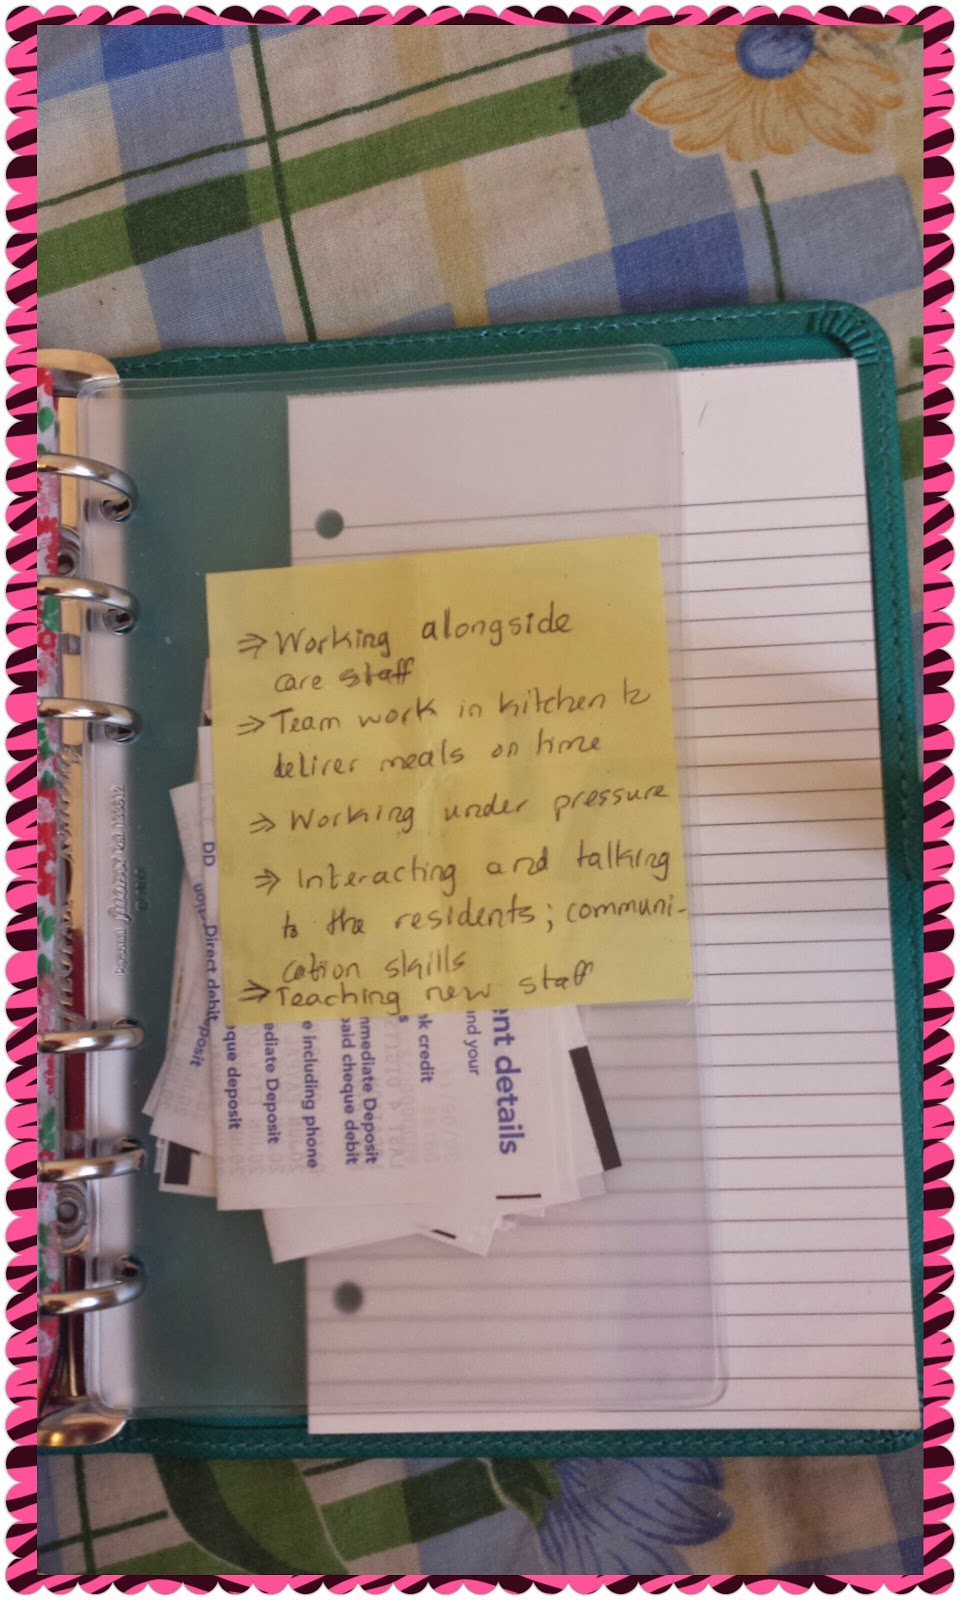 ⇒ Working alongside
care staff
⇒ Team work in kitchen to
deliver meals on time
⇒ Working under pressure
⇒ Interacting and talking
to the residents; communi-
cation skills
⇒ Teaching new staff
DD
Direct debit
eposit
que deposit
ediate Deposit
e including phone
paid cheque debit
mmediate Deposit
k credit
and your
ent details